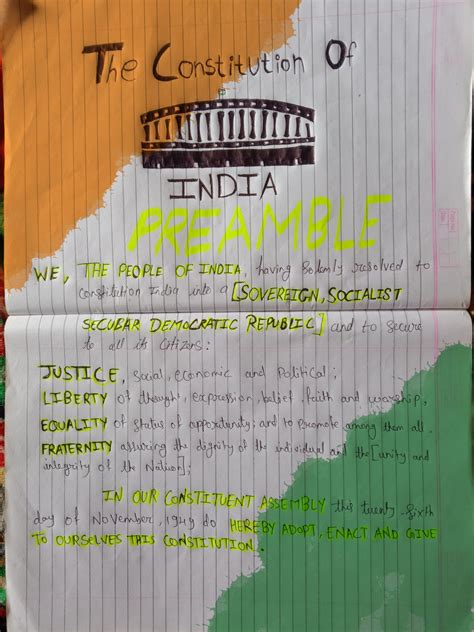 The Constitution Of
INDIA
PREAMBLE
WE, THE PEOPLE OF INDIA, having Solemly resolved to
Constitution India into a [SOVEREIGN, SOCIALIST
SECULAR DEMOCRATIC REPUBLIC] and to secure
to all its Citizens:
JUSTICE, Social, economic and Political;
LIBERTY of thought, expression, belief, faith and worship,
EQUALITY of status of opportunity; and to Promote among them all.
FRATERNITY assuring the dignity of the individual and the [unity and
integrity of the Nation];
IN OUR CONSTITUENT ASSEMBLY this twenty Sixth
day of November, 1949 do HEREBY ADOPT, ENACT AND GIVE
TO OURSELVES THIS CONSTITUTION.